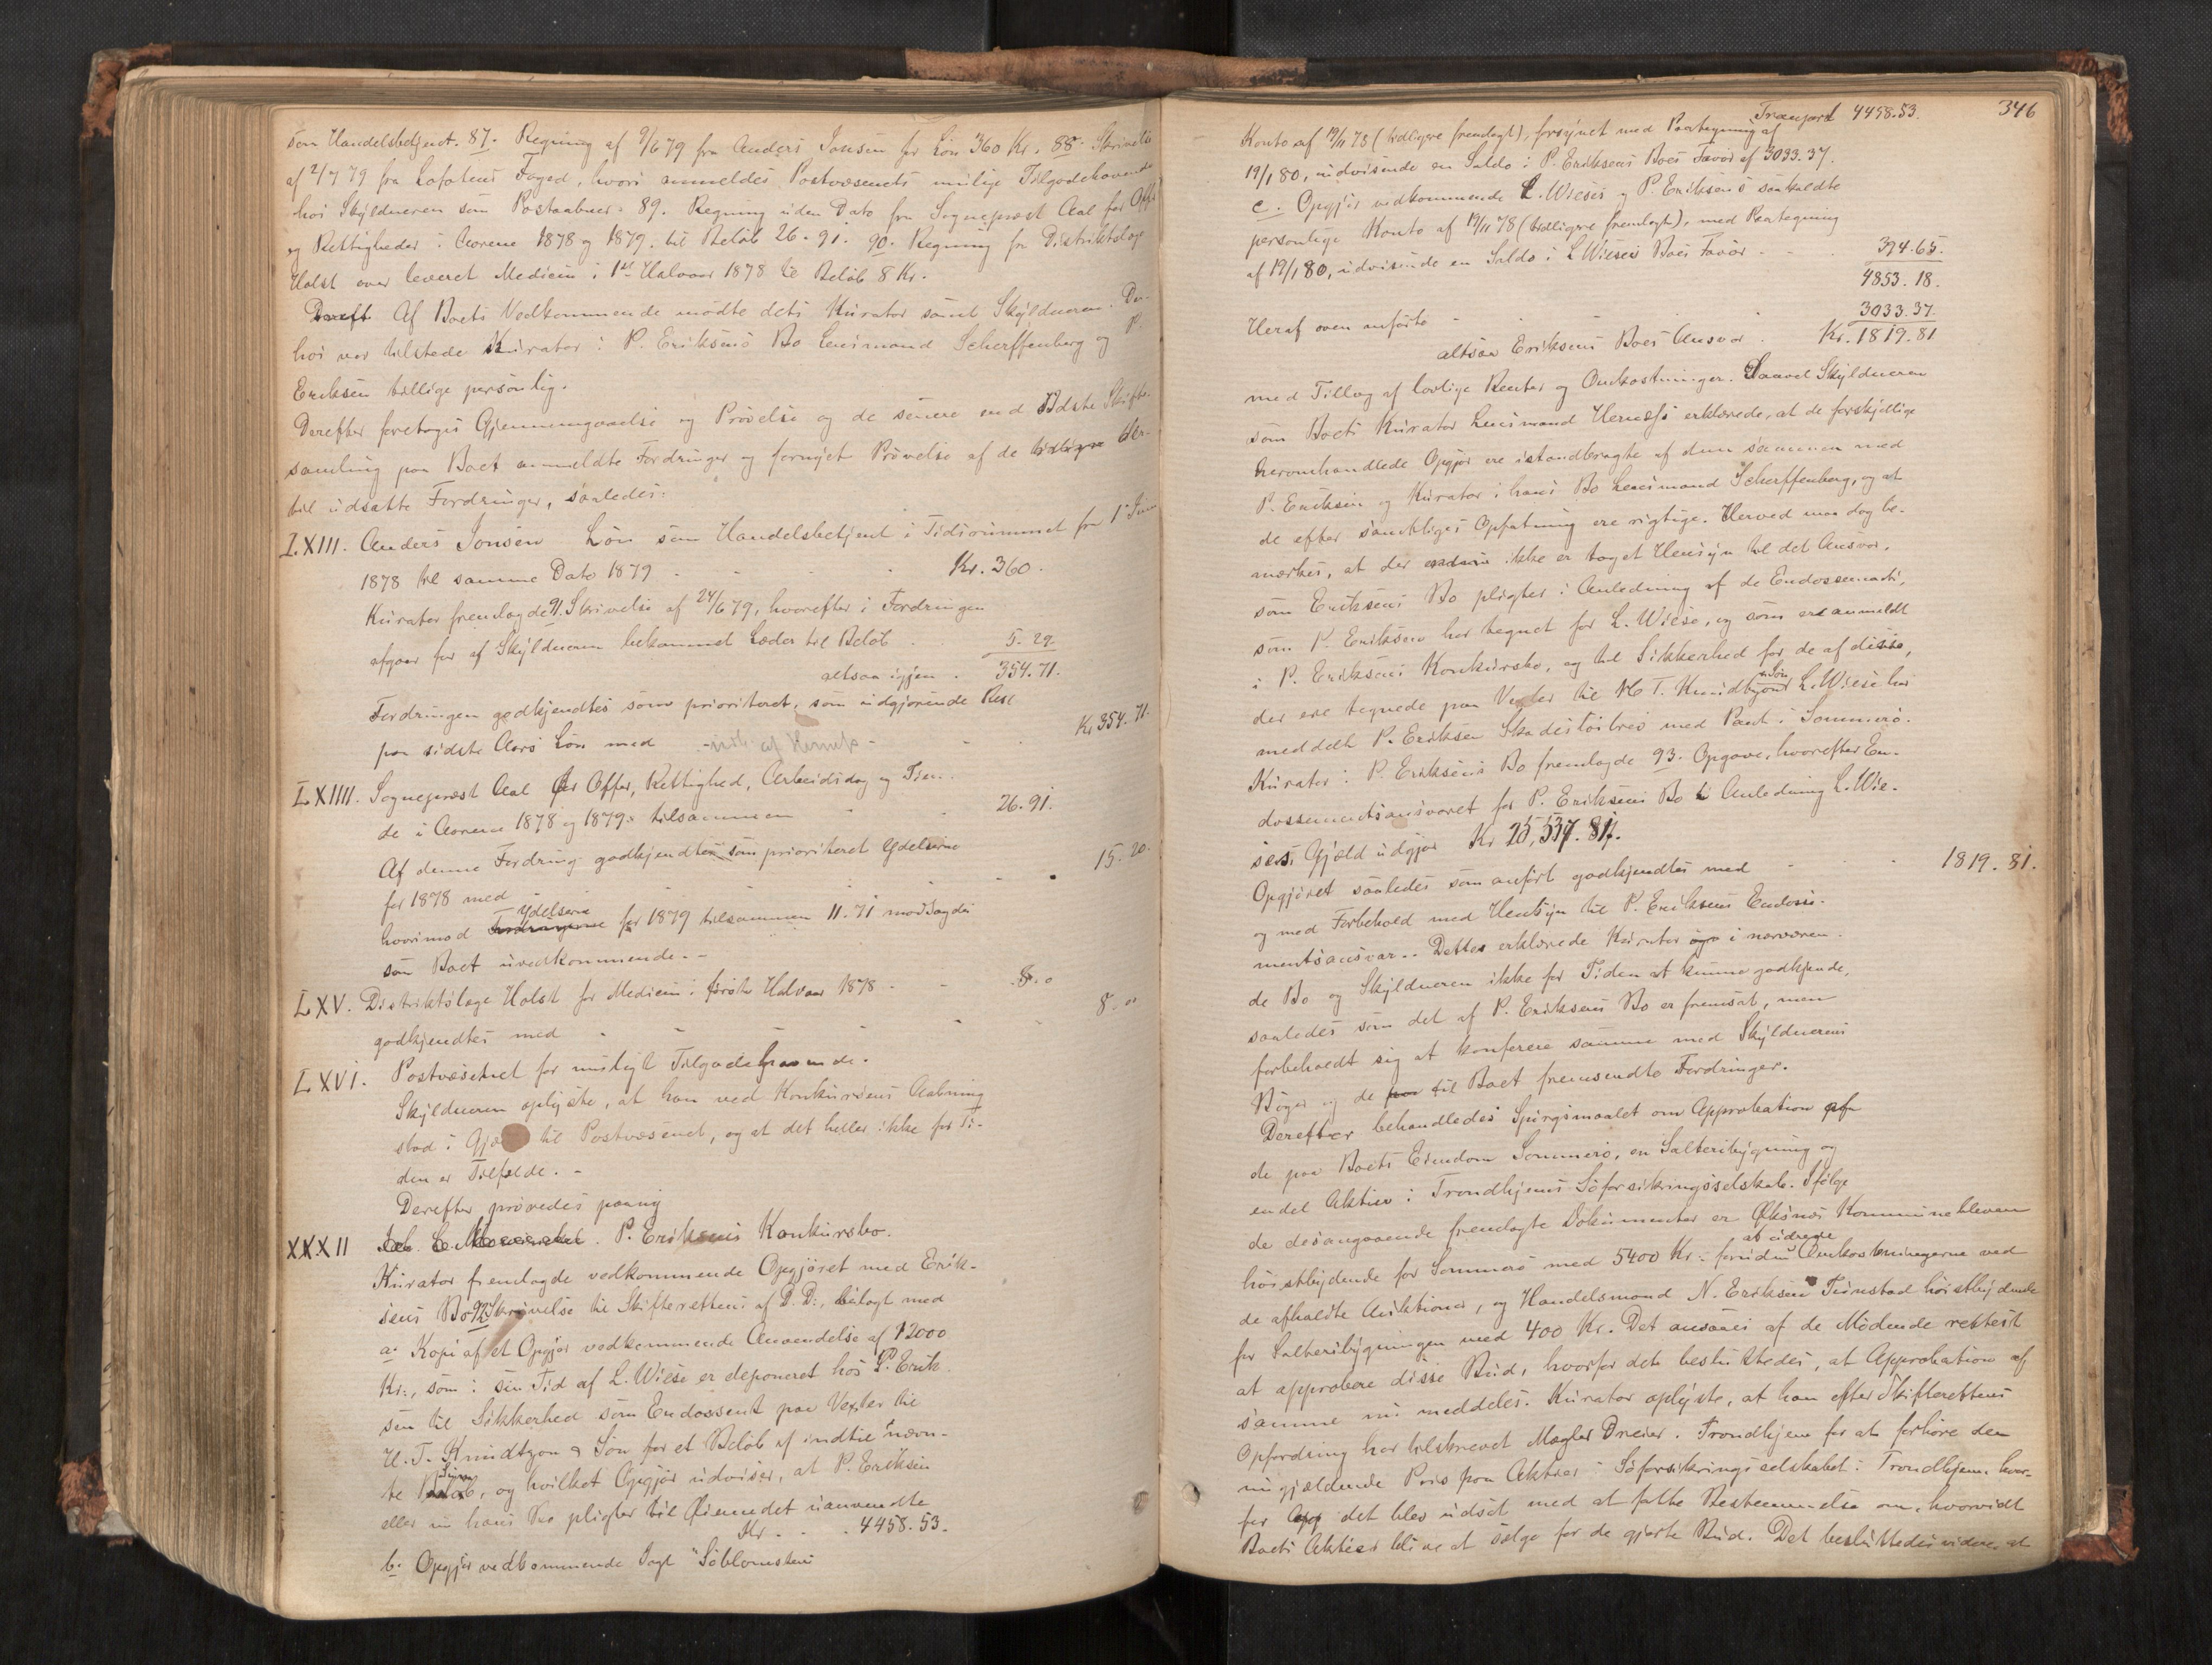 som Handelsbetjent. 87. Regning af 9/6 79 fra Anders Jonsen for Løn 360 Kr. 88. Skrivelse
af 2/7 79 fra Lofotens Foged, hvori anmeldes Postvæsenets mulige Tilgodehavende
hos Skyldneren som Postaabner. 89. Regning uden Dato fra Sognepræst Aal for Offer
og Rettigheder i Aarene 1878 og 1879. til Beløb 26.91. 90. Regning fra Distriktslæge
Holst over leveret Medicin i 1ste Halvaar 1878 til Beløb 8 Kr.
Af Boets Vedkommende mødte dets Kurator samt Skyldneren. Der-
hos var tilstede Kurator i P. Eriksens Bo Lensmand Scherffenberg og P.
Eriksen tillige personlig.
Derefter foretoges Gjennemgaaelse og Prøvelse og de senere end sidste Skifte-
samling paa Boet anmeldte Fordringer og fornyet Prøvelse af de tidligere her-
til udsatte Fordringer, saaledes:
LXIII. Anders Jonsen Løn som Handelsbetjent i Tidsrummet fra 1 Juni
1878 til samme Dato 1879 - - - Kr. 360.
Kurator fremlagde 91. Skrivelse af 24/6 79, hvorefter i Fordringen
afgaar for af Skyldneren bekommet Læder til Beløb 5.29
altsaa igjen . 354.71.
Fordringen godkjendtes som prioriteret, som udgjørende Rest
paa sidste Aars Løn med - Kr 354.71.
LXIIII. Sognepræst Aal for Offer, Rettighed, Arbeidsdag og Tien-
de i Aarene 1878 og 1879: tilsammen 26.91.
Af denne Fordring godkjendtes som prioriteret Ydelserne
for 1878 med 15.20.
Ydelserne
hvorimod Fordringerne for 1879 tilsammen 11.71 modsagdes
som Boet uvedkommende. -
LXV. Distriktslæge Holst for Medicin i første Halvaar 1878 - - 8.0
godkjendtes med - - - - 8.00
LXVI. Postvæsenet for muligt Tilgodehavende.
Skyldneren oplyste, at han ved Konkursens Aabning
stod i Gjæ til Postvæsenet, og at det heller ikke for Ti-
den er Tilfælde. -
Derefter prøvedes paany
XXXII P. Eriksens Konkursbo.
Kurator fremlagde vedkommende Opgjøret med Erik-
sens Bo 92. Skrivelse til Skifteretten af D.D., bilagt med
a. Kopi af et Opgjør vedkommende Anvendelse af 12000
Kr., som i sin Tid af L. Wiese er deponeret hos P. Erik-
sen til Sikkerhed som Endossent paa Vexler til
H. T. Knudtzon & Søn for et Beløb af indtil nævn-
te Beløb, og hvilket Opgjør udviser, at P. Eriksen
eller nu hans Bo pligter til Øiemedet uanvendte
Kr. - - . 4458.53.
b. Opgjør vedkommende Jagt "Søblomsten
Transport 4458.53. 346
Konto af 19/11 78 (tidligere fremlagt), forsynet med Paategning af
19/1 80, udvisende en Saldo i P. Eriksens Boes Favør af 3033.37.
c. Opgjør vedkommende L. Wieses og P. Eriksens saakaldte
personlige Konto af 19/11 78 (tidligere fremlagt), med Paategning
af 19/1 80, udvisende en Saldo i L Wieses Boes Favør - - 394.65.
4853.18.
Heraf oven anførte - - - 3033.37.
altsaa Eriksens Boes Ansvar . Kr. 1819.81
med Tillæg af lovlige Renter og Omkostninger. Saavel Skyldneren
som Boets Kurator Lensmand Herness erklærede, at de forskjellige
heromhandlede Opgjør ere istandbragte af dem sammen med
P. Eriksen og Kurator i hans Bo Lensmand Scherffenberg, og at
de efter samtliges Opfatning ere rigtige. Herved maa dog be-
mærkes, at der endnu ikke er taget Hensyn til det Ansvar,
som Eriksens Bo pligter i Anledning af de Endossements,
som P. Eriksen har tegnet for L. Wiese, og som er anmeldt
i P. Eriksens Konkursbo, og til Sikkerhed for de af disse,
& Søn
der ere tegnede paa Vexler til H. T. Knudtzon L. Wiese har
meddelt P. Eriksen Skadesløsbrev med Pant i Sommerø.
Kurator i P. Eriksens Bo fremlagde 93. Opgave, hvorefter En-
dossementsansvaret for P. Eriksens Bo i Anledning L. Wie-
ses Gjæld udgjør Kr 25,537.81.
Opgjøret saaledes som anført godkjendtes med - - 1819.81.
og med Forbehold med Hensyn til P. Eriksens Endosse-
mentsansvar. - Dette erklærede Kurator i nærværen-
de Bo og Skyldneren ikke for Tiden at kunne godkjende,
saaledes som det af P. Eriksens Bo er fremsat, men
forbeholdt sig at konferere samme med Skyldnerens
Bøger og de til Boet fremsendte Fordringer.
Derefter behandledes Spørgsmaalet om Approbation
de paa Boets Eiendom Sommerø, en Salteribygning og
endel Aktier i Trondhjems Søforsikringsselskab. Ifølge
de desangaaende fremlagte Dokumenter er Øksnes Kommune bleven
at udrede
høistbydende for Sommerø med 5400 Kr. foruden Omkostningerne ved
de afholdte Auktioner, og Handelsmand N. Eriksen Tinnstad høistbydende
for Salteribygningen med 400 Kr. Det ansaaes af de Mødende rettest
at approbere disse Bud, hvorfor det besluttedes, at Approbation af
samme nu meddeles. Kurator oplyste, at han efter Skifterettens
Opfordring har tilskrevet Mægler Dreier i Trondhjem for at forhøre den
nugjældende Pris paa Aktier i Søforsikringsselskabet i Trondhjem, hvor-
for det blev udsat med at fatte Bestemmelse om, hvorvidt
Boets Aktier blive at sælge for de gjorte Bud. Det besluttedes videre, at